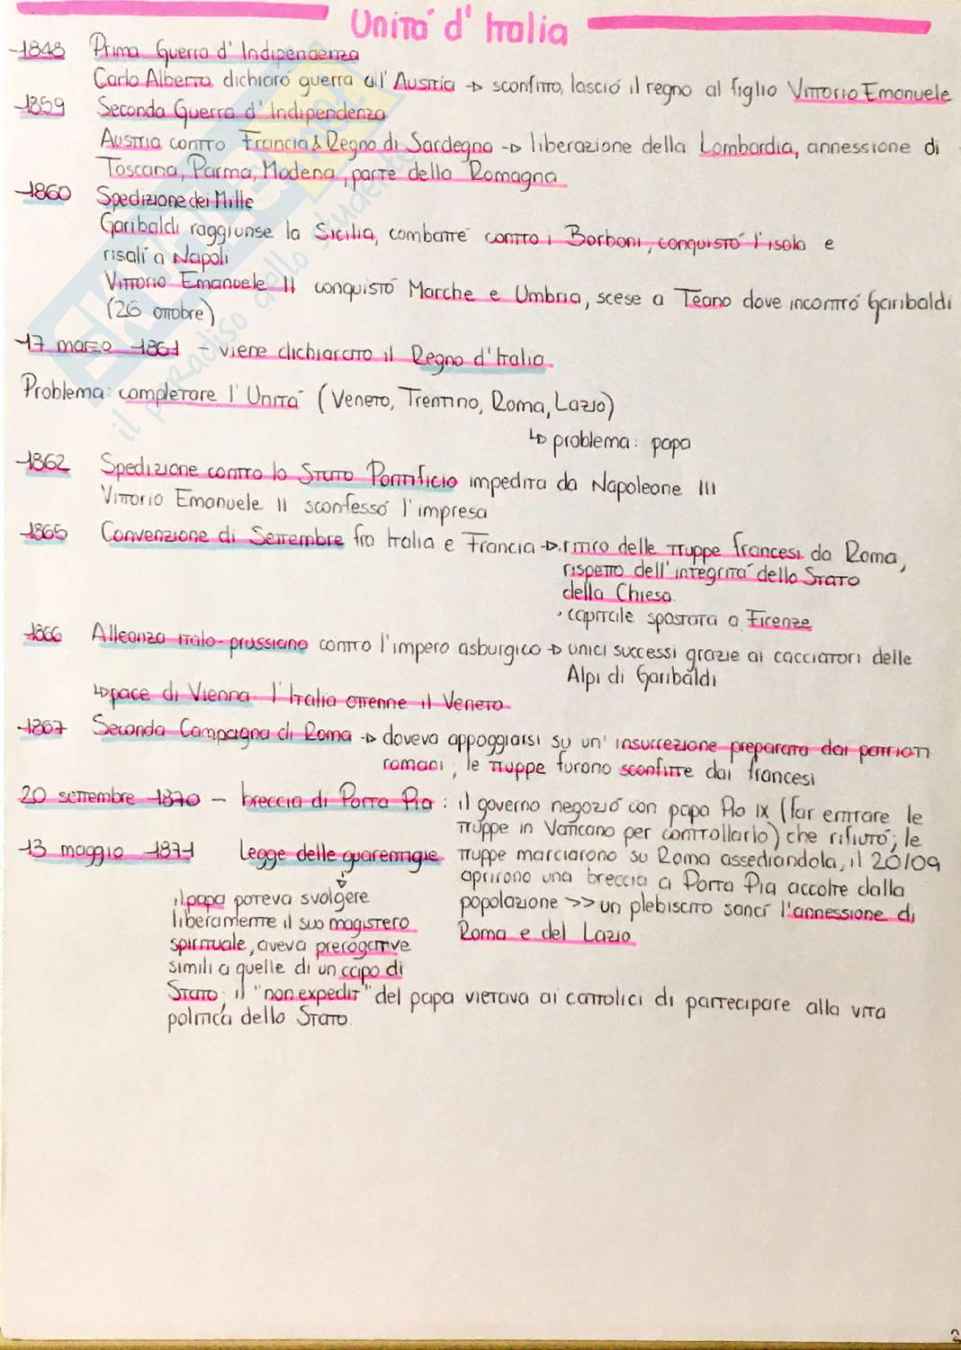 Unità d'Italia
-1848 Prima Guerra d'Indipendenza
Carlo Alberto dichiarò guerra all'Austria → sconfitto, lasciò il regno al figlio Vittorio Emanuele
-1859 Seconda Guerra d'Indipendenza
Austria contro Francia & Regno di Sardegna → liberazione della Lombardia, annessione di
Toscana, Parma, Modena, parte della Romagna
-1860 Spedizione dei Mille
Garibaldi raggiunse la Sicilia, combatté contro i Borboni, conquistò l'isola e
risalì a Napoli
Vittorio Emanuele II conquistò Marche e Umbria, scese a Teano dove incontrò Garibaldi
(26 ottobre)
-17 marzo 1861 - viene dichiarato il Regno d'Italia
Problema: completare l'Unità (Veneto, Trentino, Roma, Lazio)
↳ problema: papa
-1862 Spedizione contro lo Stato Pontificio impedita da Napoleone III
Vittorio Emanuele II sconfessò l'impresa
-1865 Convenzione di Settembre fra Italia e Francia → ritiro delle truppe francesi da Roma,
rispetto dell'integrità dello Stato
della Chiesa
· capitale spostata a Firenze
-1866 Alleanza italo-prussiana contro l'impero asburgico → unici successi grazie ai cacciatori delle
Alpi di Garibaldi
↳ pace di Vienna l'Italia ottenne il Veneto
-1867 Seconda Campagna di Roma → doveva appoggiarsi su un' insurrezione preparata dai patrioti
romani; le truppe furono sconfitte dai francesi
20 settembre 1870 - breccia di Porta Pia: il governo negoziò con papa Pio IX (far entrare le
truppe in Vaticano per controllarlo) che rifiutò; le
13 maggio 1871 Legge delle guarentigie truppe marciarono su Roma assediandola, il 20/09
aprirono una breccia a Porta Pia accolte dalla
il papa poteva svolgere popolazione >> un plebiscito sancì l'annessione di
liberamente il suo magistero Roma e del Lazio
spirituale, aveva prerogative
simili a quelle di un capo di
Stato; il "non expedit" del papa vietava ai cattolici di partecipare alla vita
politica dello Stato.
il paradiso dello studente
2